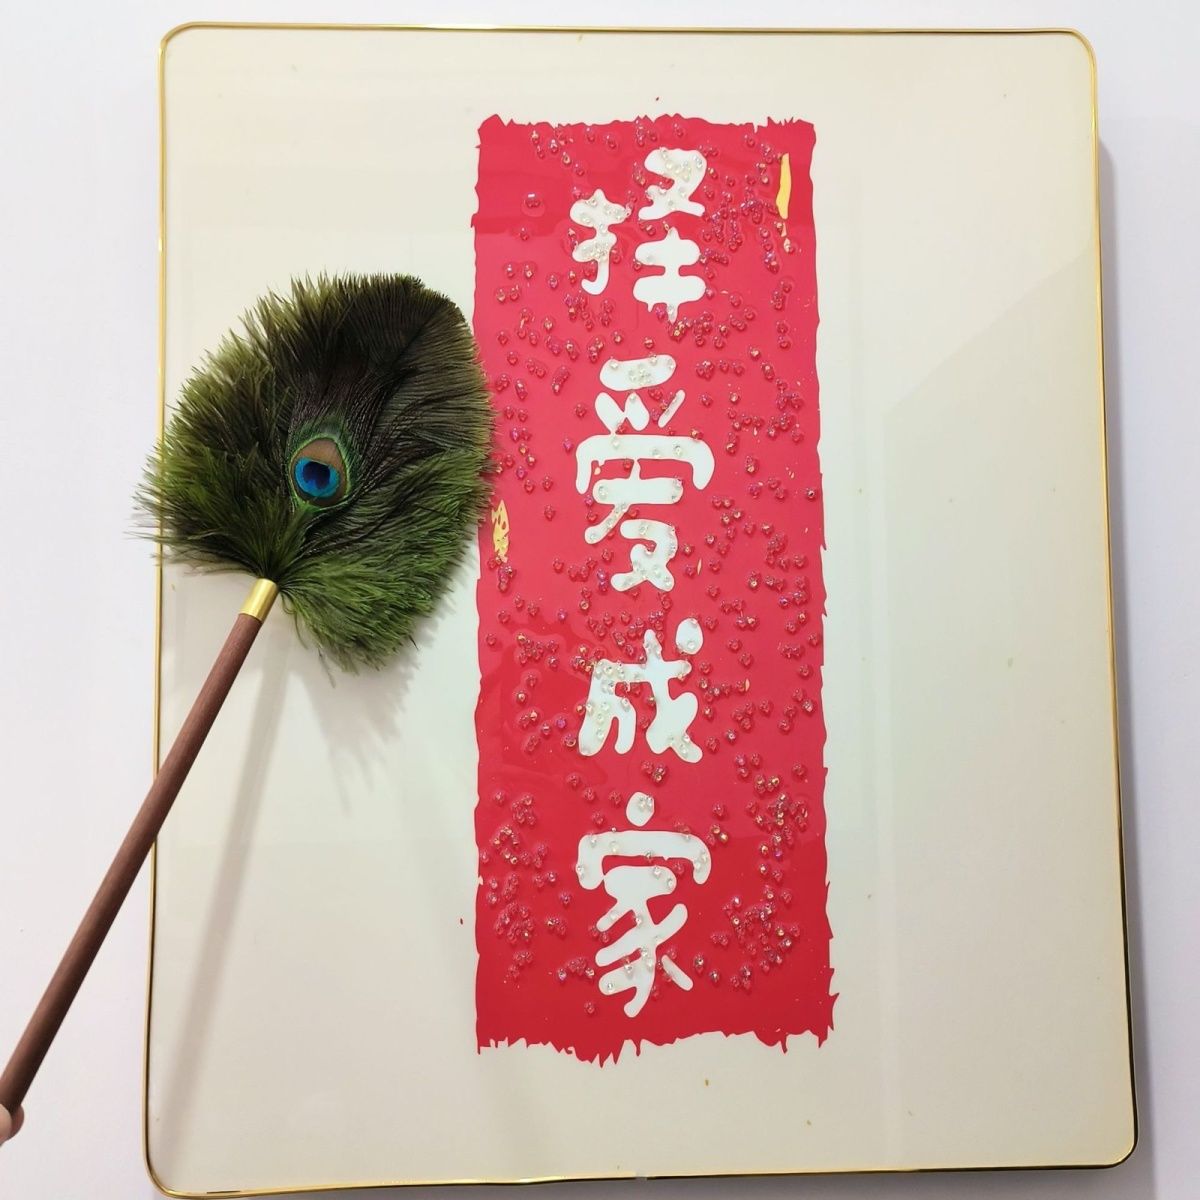 择爱成家